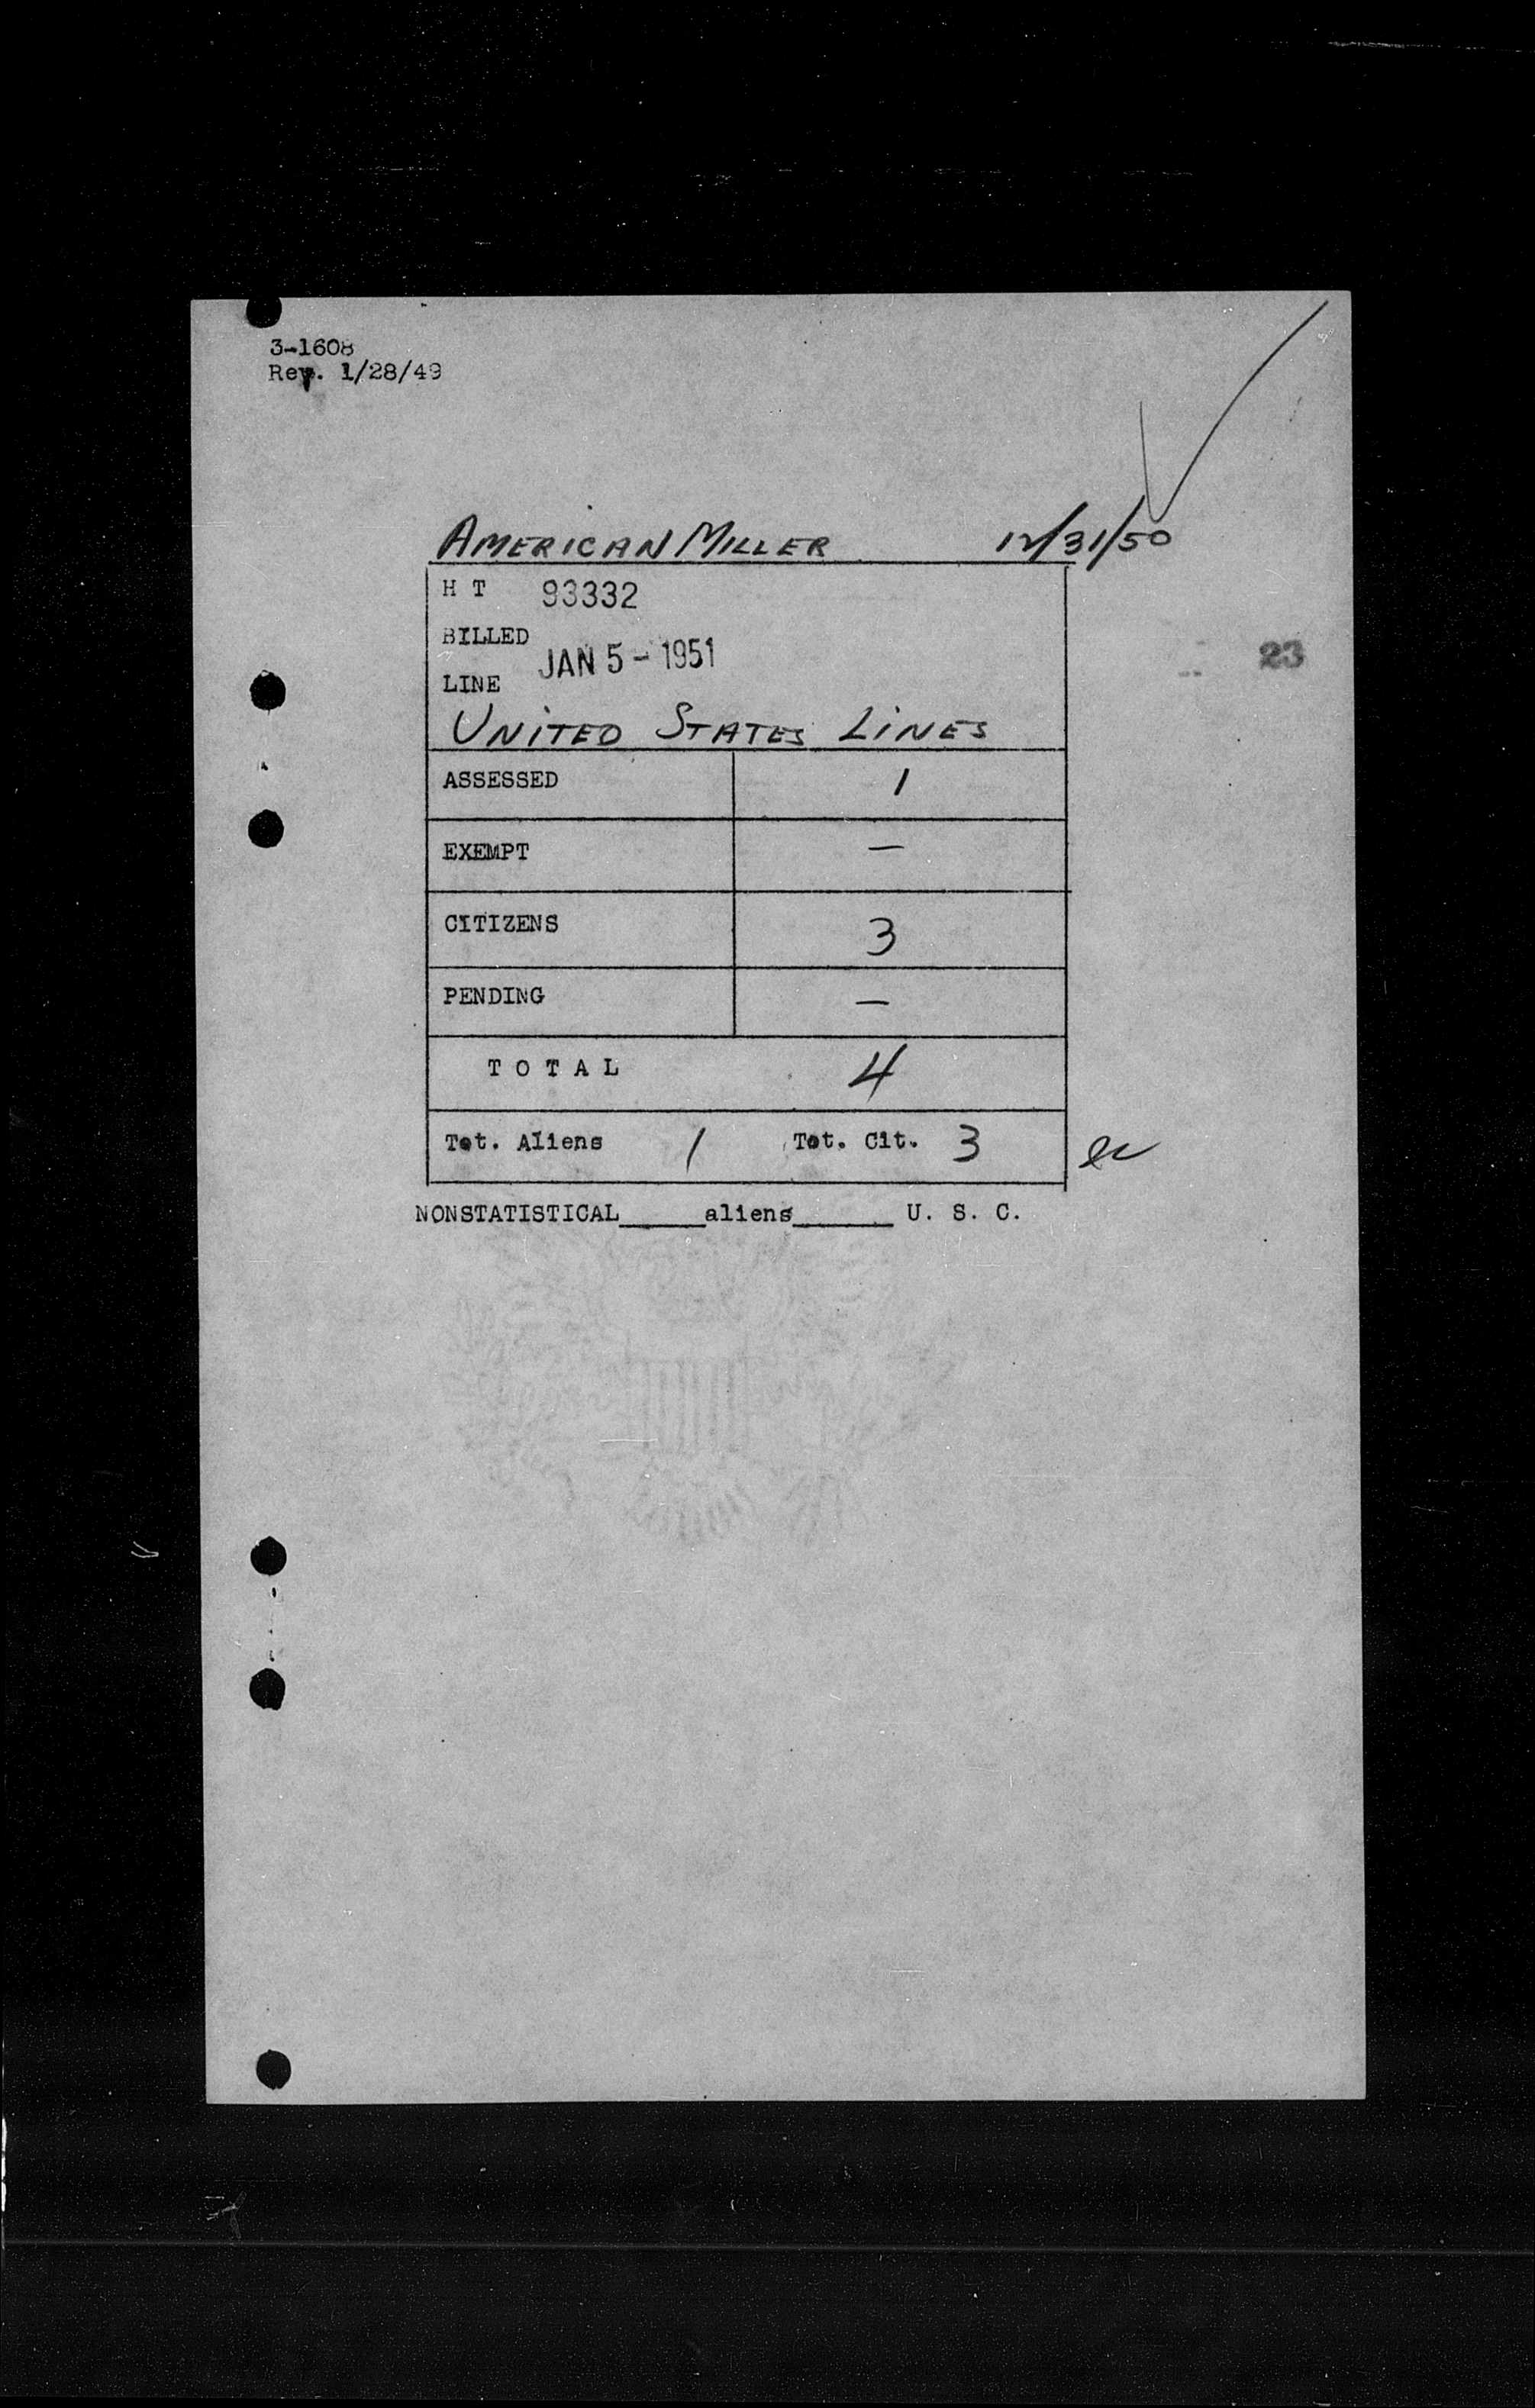 3-1608
Rev. 1/28/49
AMERICAN MILLER 12/31/50
H T 93332
BILLED
JAN 5 - 1951
LINE
UNITED STATES LINES
23
ASSESSED 1
EXEMPT —
CITIZENS 3
PENDING —
T O T A L 4
Tot. Aliens 1 Tot. Cit. 3
NONSTATISTICAL_____aliens______ U. S. C.